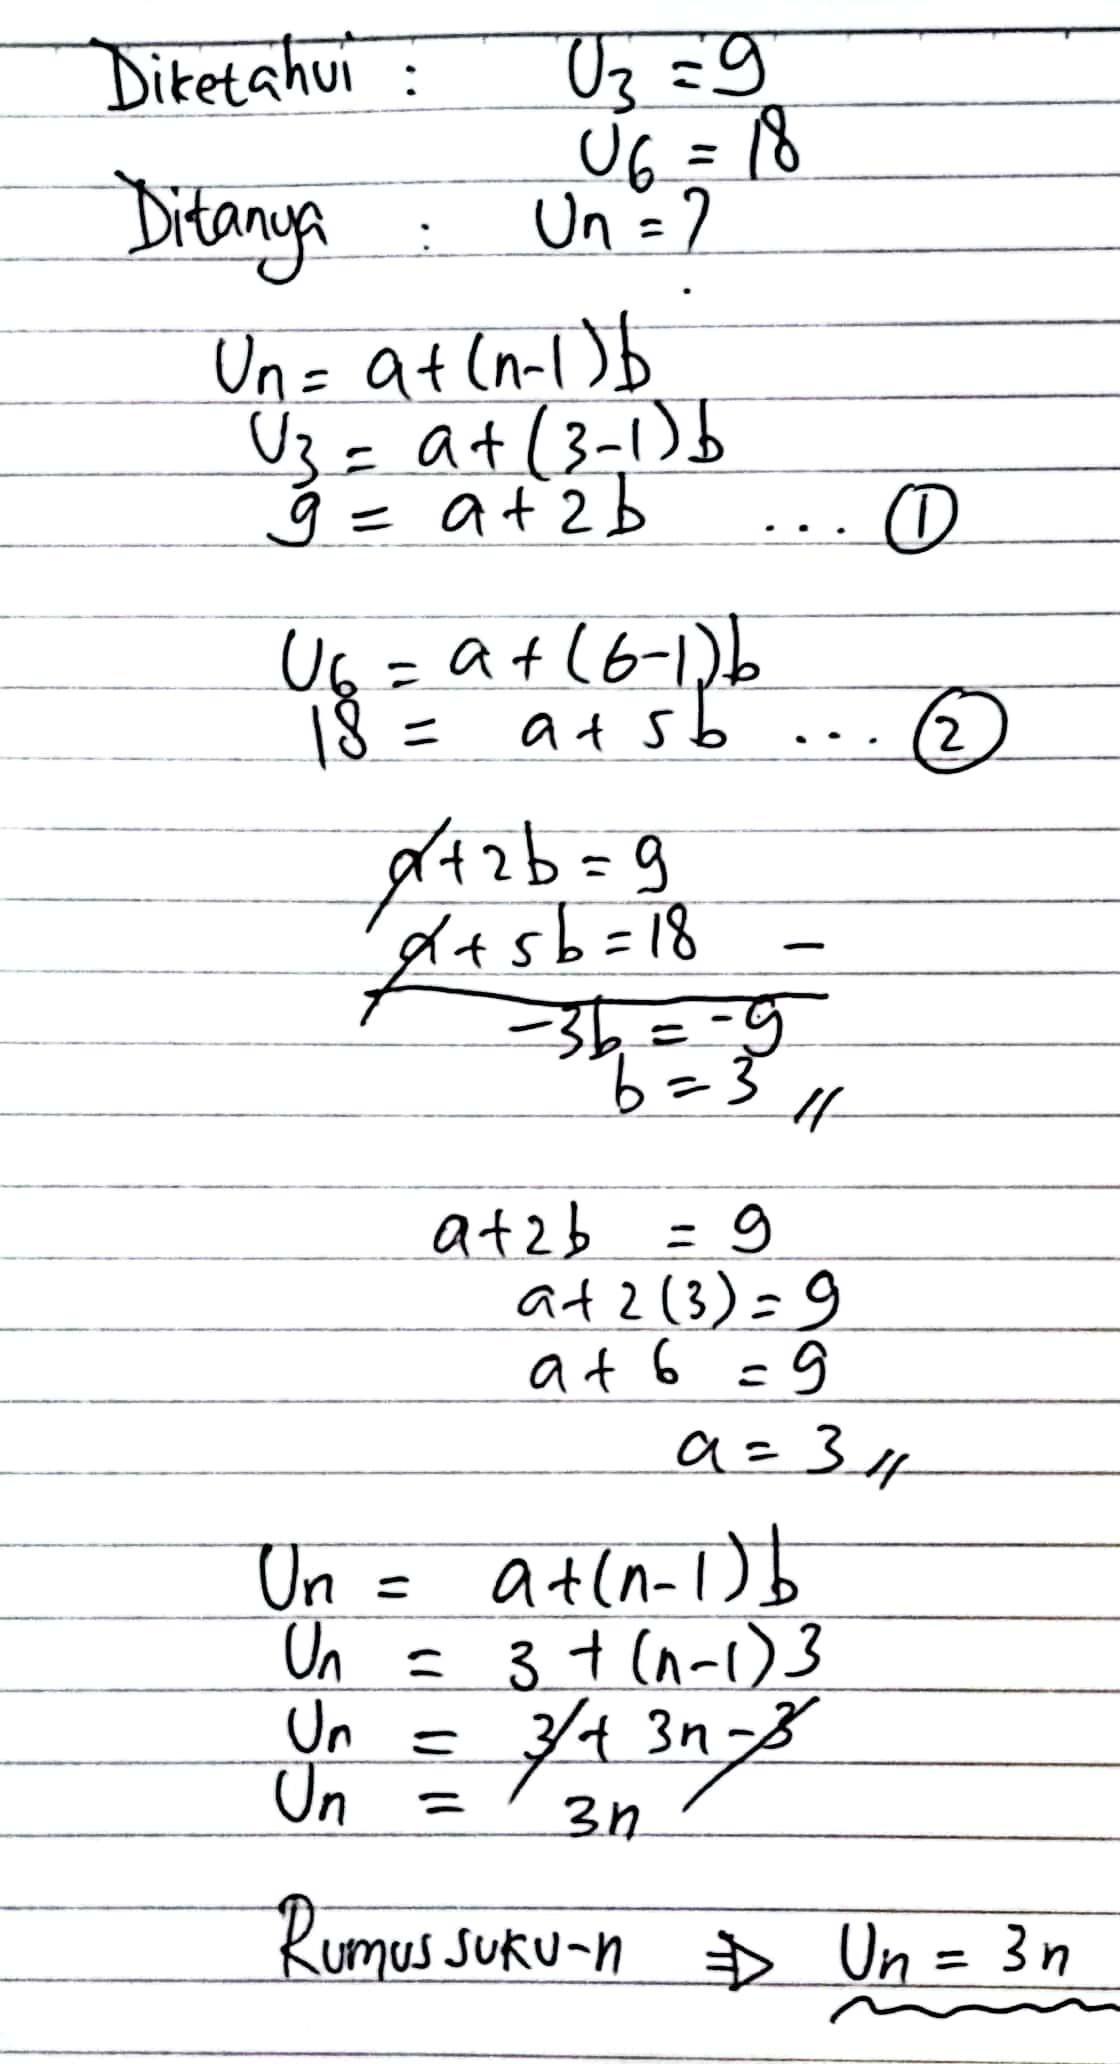 Diketahui : U3 = 9
U6 = 18
Ditanya : Un = ?
Un = a + (n-1)b
U3 = a + (3-1)b
9 = a + 2b ... ①
U6 = a + (6-1)b
18 = a + 5b ... ②
a + 2b = 9
a + 5b = 18 −
-3b = -9
b = 3 //
a + 2b = 9
a + 2(3) = 9
a + 6 = 9
a = 3 //
Un = a + (n-1)b
Un = 3 + (n-1)3
Un = 3 + 3n - 3
Un = 3n
Rumus suku-n ⇒ Un = 3n